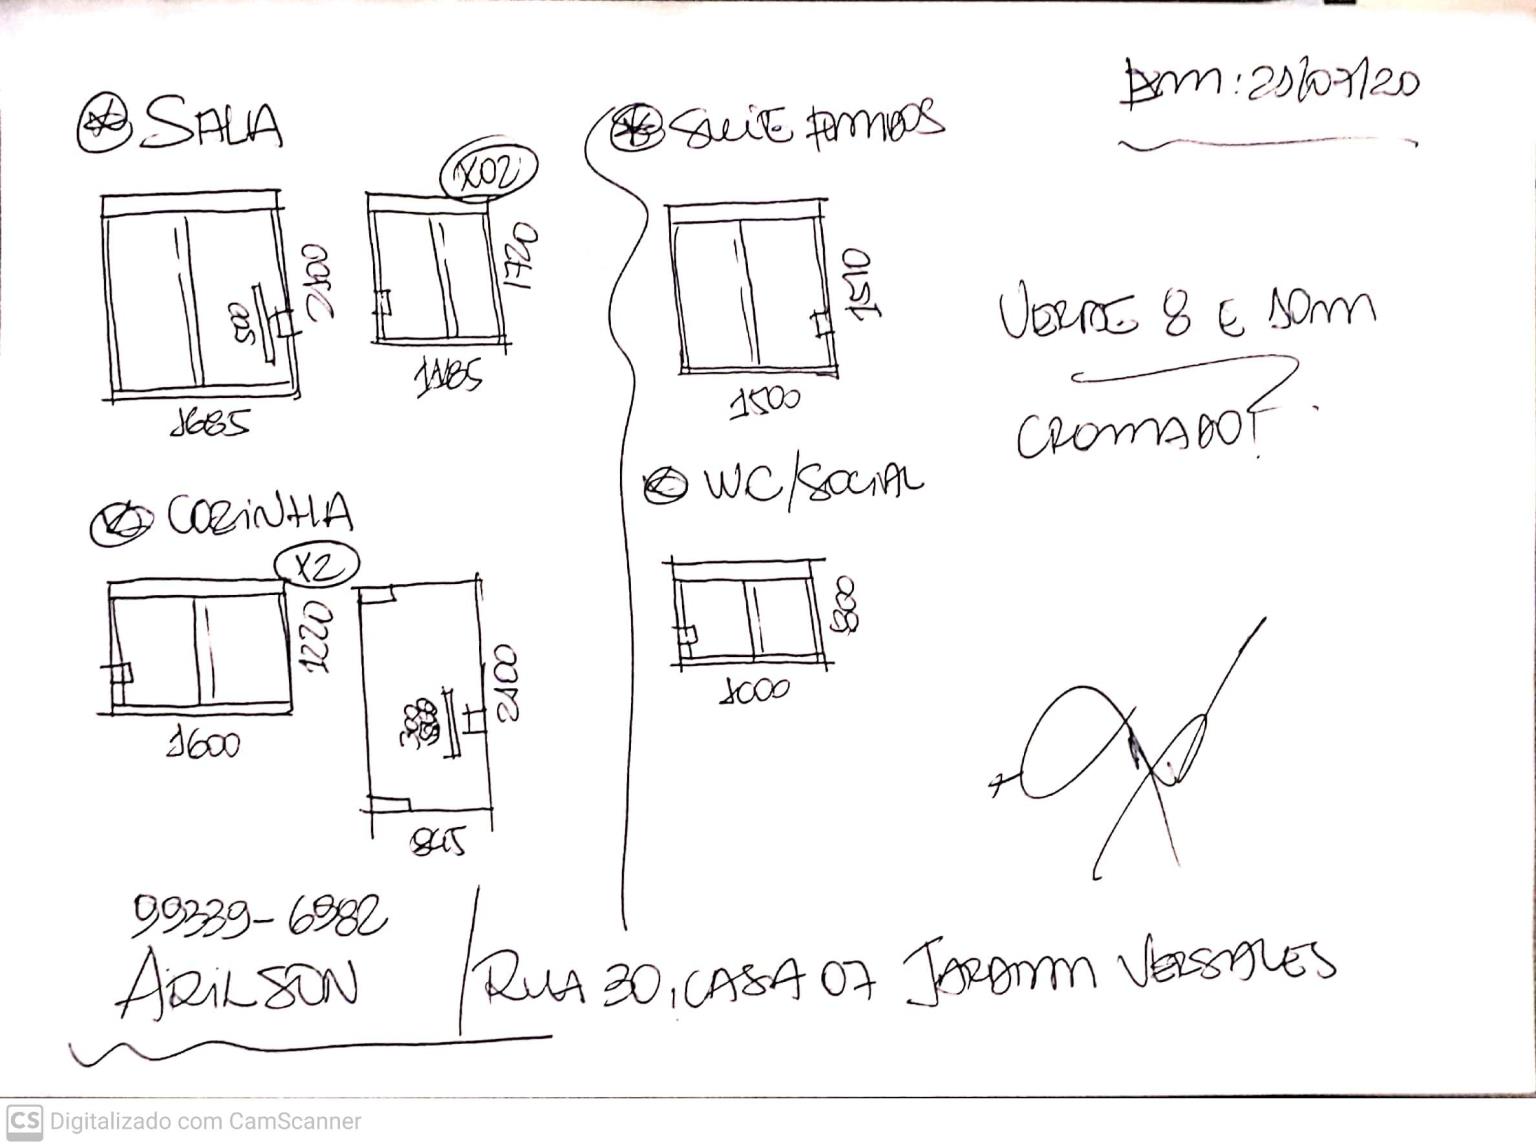 SALA
X02
2100
500
1685
1720
1185
COZINHA
X2
1220
1600
2100
300
845
SUITE AMBOS
1510
1500
WC/SOCIAL
1000
21/07/20
VERDE 8 E 10MM
CROMADO
99339-6982
ARILSON
RUA 30, CASA 07 JARDIM VERSALES
CS Digitalizado com CamScanner